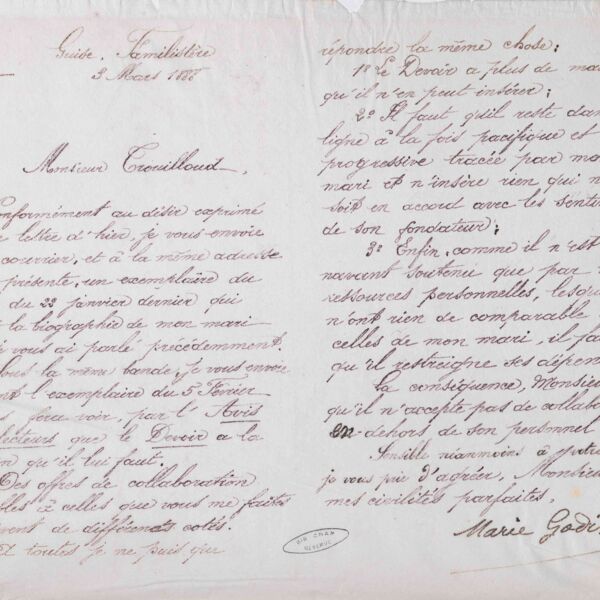 Guise, Familistère
3 Mars 1888
Monsieur Trouilloud,
onformément au désir exprimé
e lettre d'hier, je vous envoie
courrier, et à la même adresse
présente, un exemplaire du
du 22 janvier dernier qui
t la biographie de mon mari
e vous ai parlé précédemment.
ous la même bande, je vous envoie
nt l'exemplaire du 5 Février
s fera voir, par l'Avis
lecteurs que le Devoir a la
on qu'il lui faut.
Des offres de collaboration
elles à celles que vous me faites
ivent de différents cotés.
Et toutes je ne puis que
répondre la même chose:
1º Le Devoir a plus de ma
qu'il n'en peut insérer;
2º Il faut qu'il reste dan
ligne à la fois pacifique et
progressive tracée par mo
mari et n'insère rien qui n
soit en accord avec les senti
de son fondateur;
3º Enfin, comme il n'est
navant soutenu que par
ressources personnelles, lesqu
n'ont rien de comparable
celles de mon mari, il fa
qu'il restreigne ses dépen
La conséquence, Monsieu
qu'il n'accepte pas de collabo
en-dehors de son personnel
Sensible néanmoins à votre
je vous prie d'agréer, Monsieu
mes civilités parfaites.
Marie Godi
BIB CNAM
RESERVE